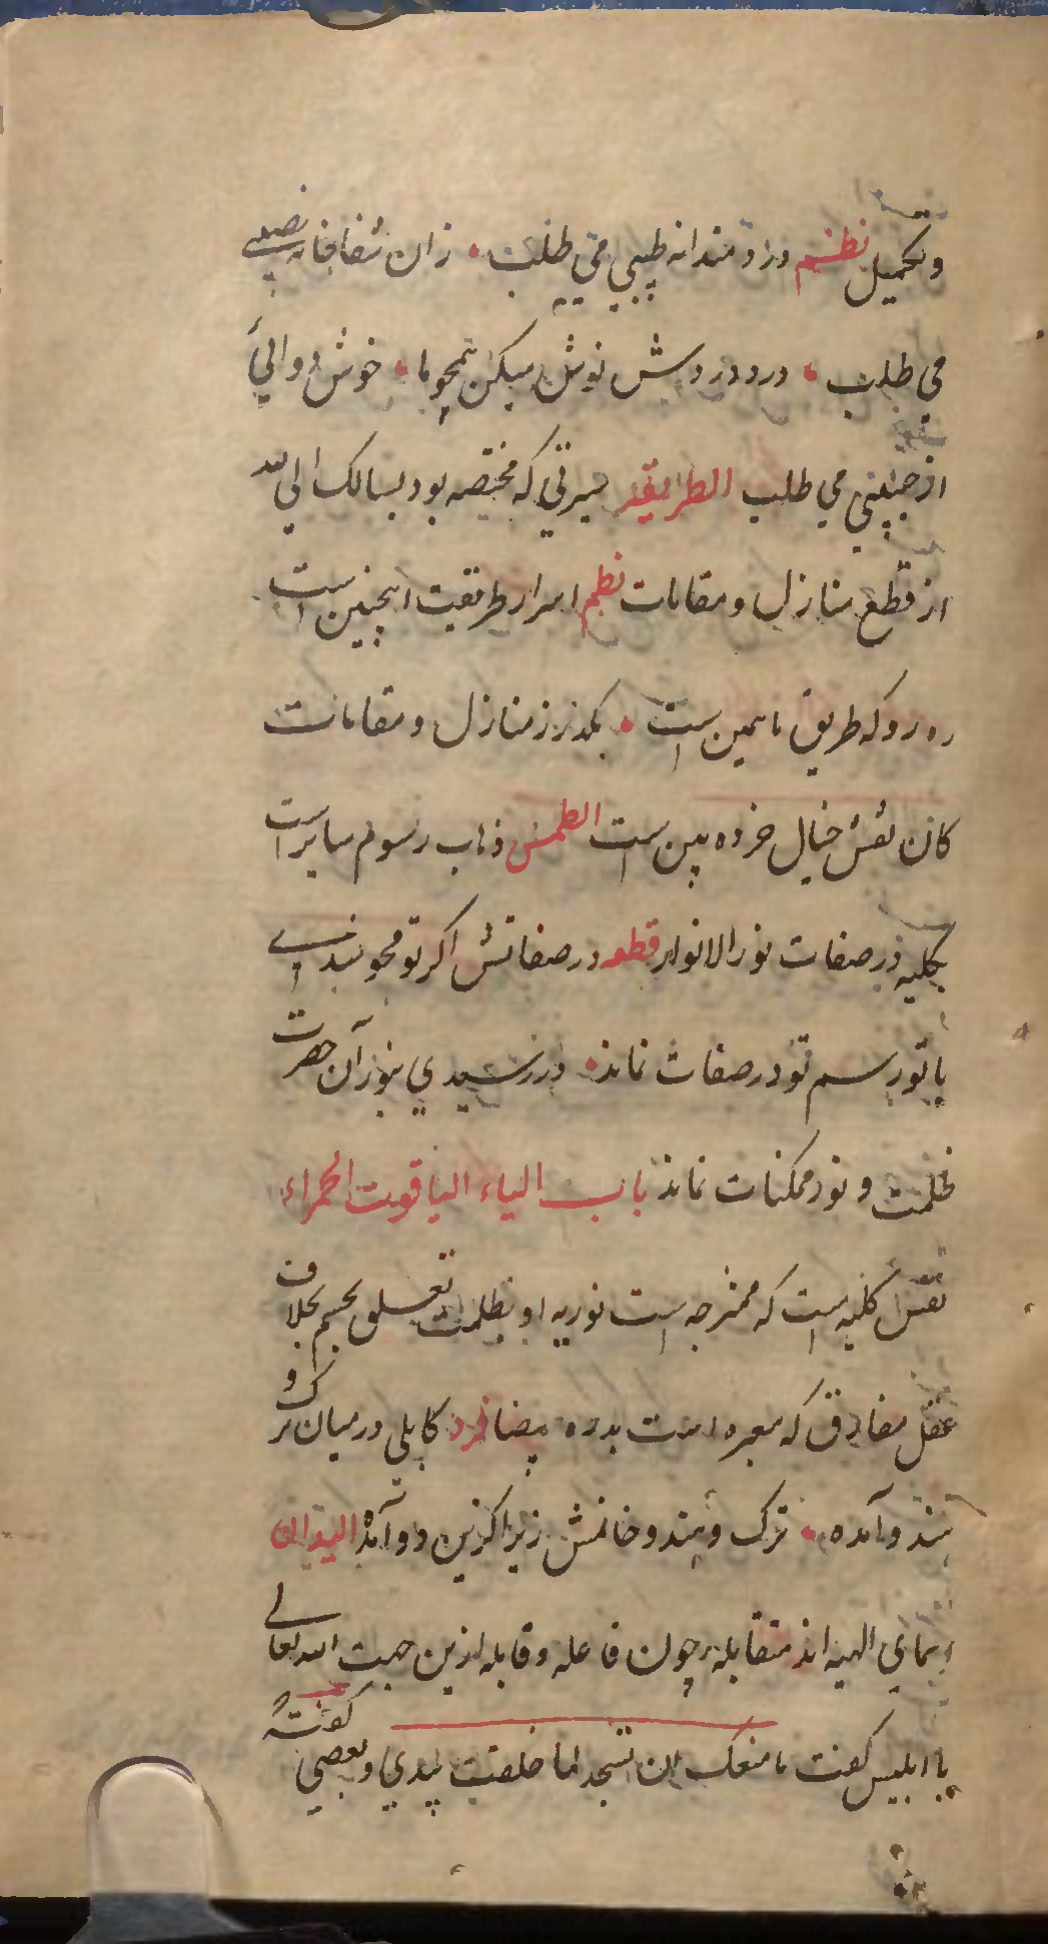 وتکمیل نظم دردمندانه طبیبی می طلب • زان شفاخانه نصیبی
می طلب • درد دردش نوش میکن همچو ما • خوش دوائی
از چنینی می طلب الطریقة سیرتی که مختصه بود بسالک الی الله
از قطع منازل و مقامات نظم اسرار طریقت اینچنین است
ره رو که طریق ما همین است • بکذر ز منازل و مقامات
کان نقش خیال خرده بین است الطمس ذهاب رسوم سایراست
بکلیه در صفات نور الانوار قطعه در صفاتش اکر تو محو شدی
با تو رسم تو در صفات نماند • ور رسیدی بنور آن حضرت
ظلمت و نور ممکنات نماند باب الیاء الیاقوت الحمراء
نفس کلیه است که ممتزجه است نوریه او بظلمت تعلق بجسم بخلاف
عقل مفارق که معبره است بدره بیضا فرد کابلی در میان ترک و
هندو آمده • ترک و هندو خانمش زیرا کزین دو آمده الیدان
اسمای الهیه اند متقابله چون فاعله و قابله ازین جهت الله تعالی
با ابلیس کفت ما منعک ان تسجد لما خلقت بیدي و بعضی کفته